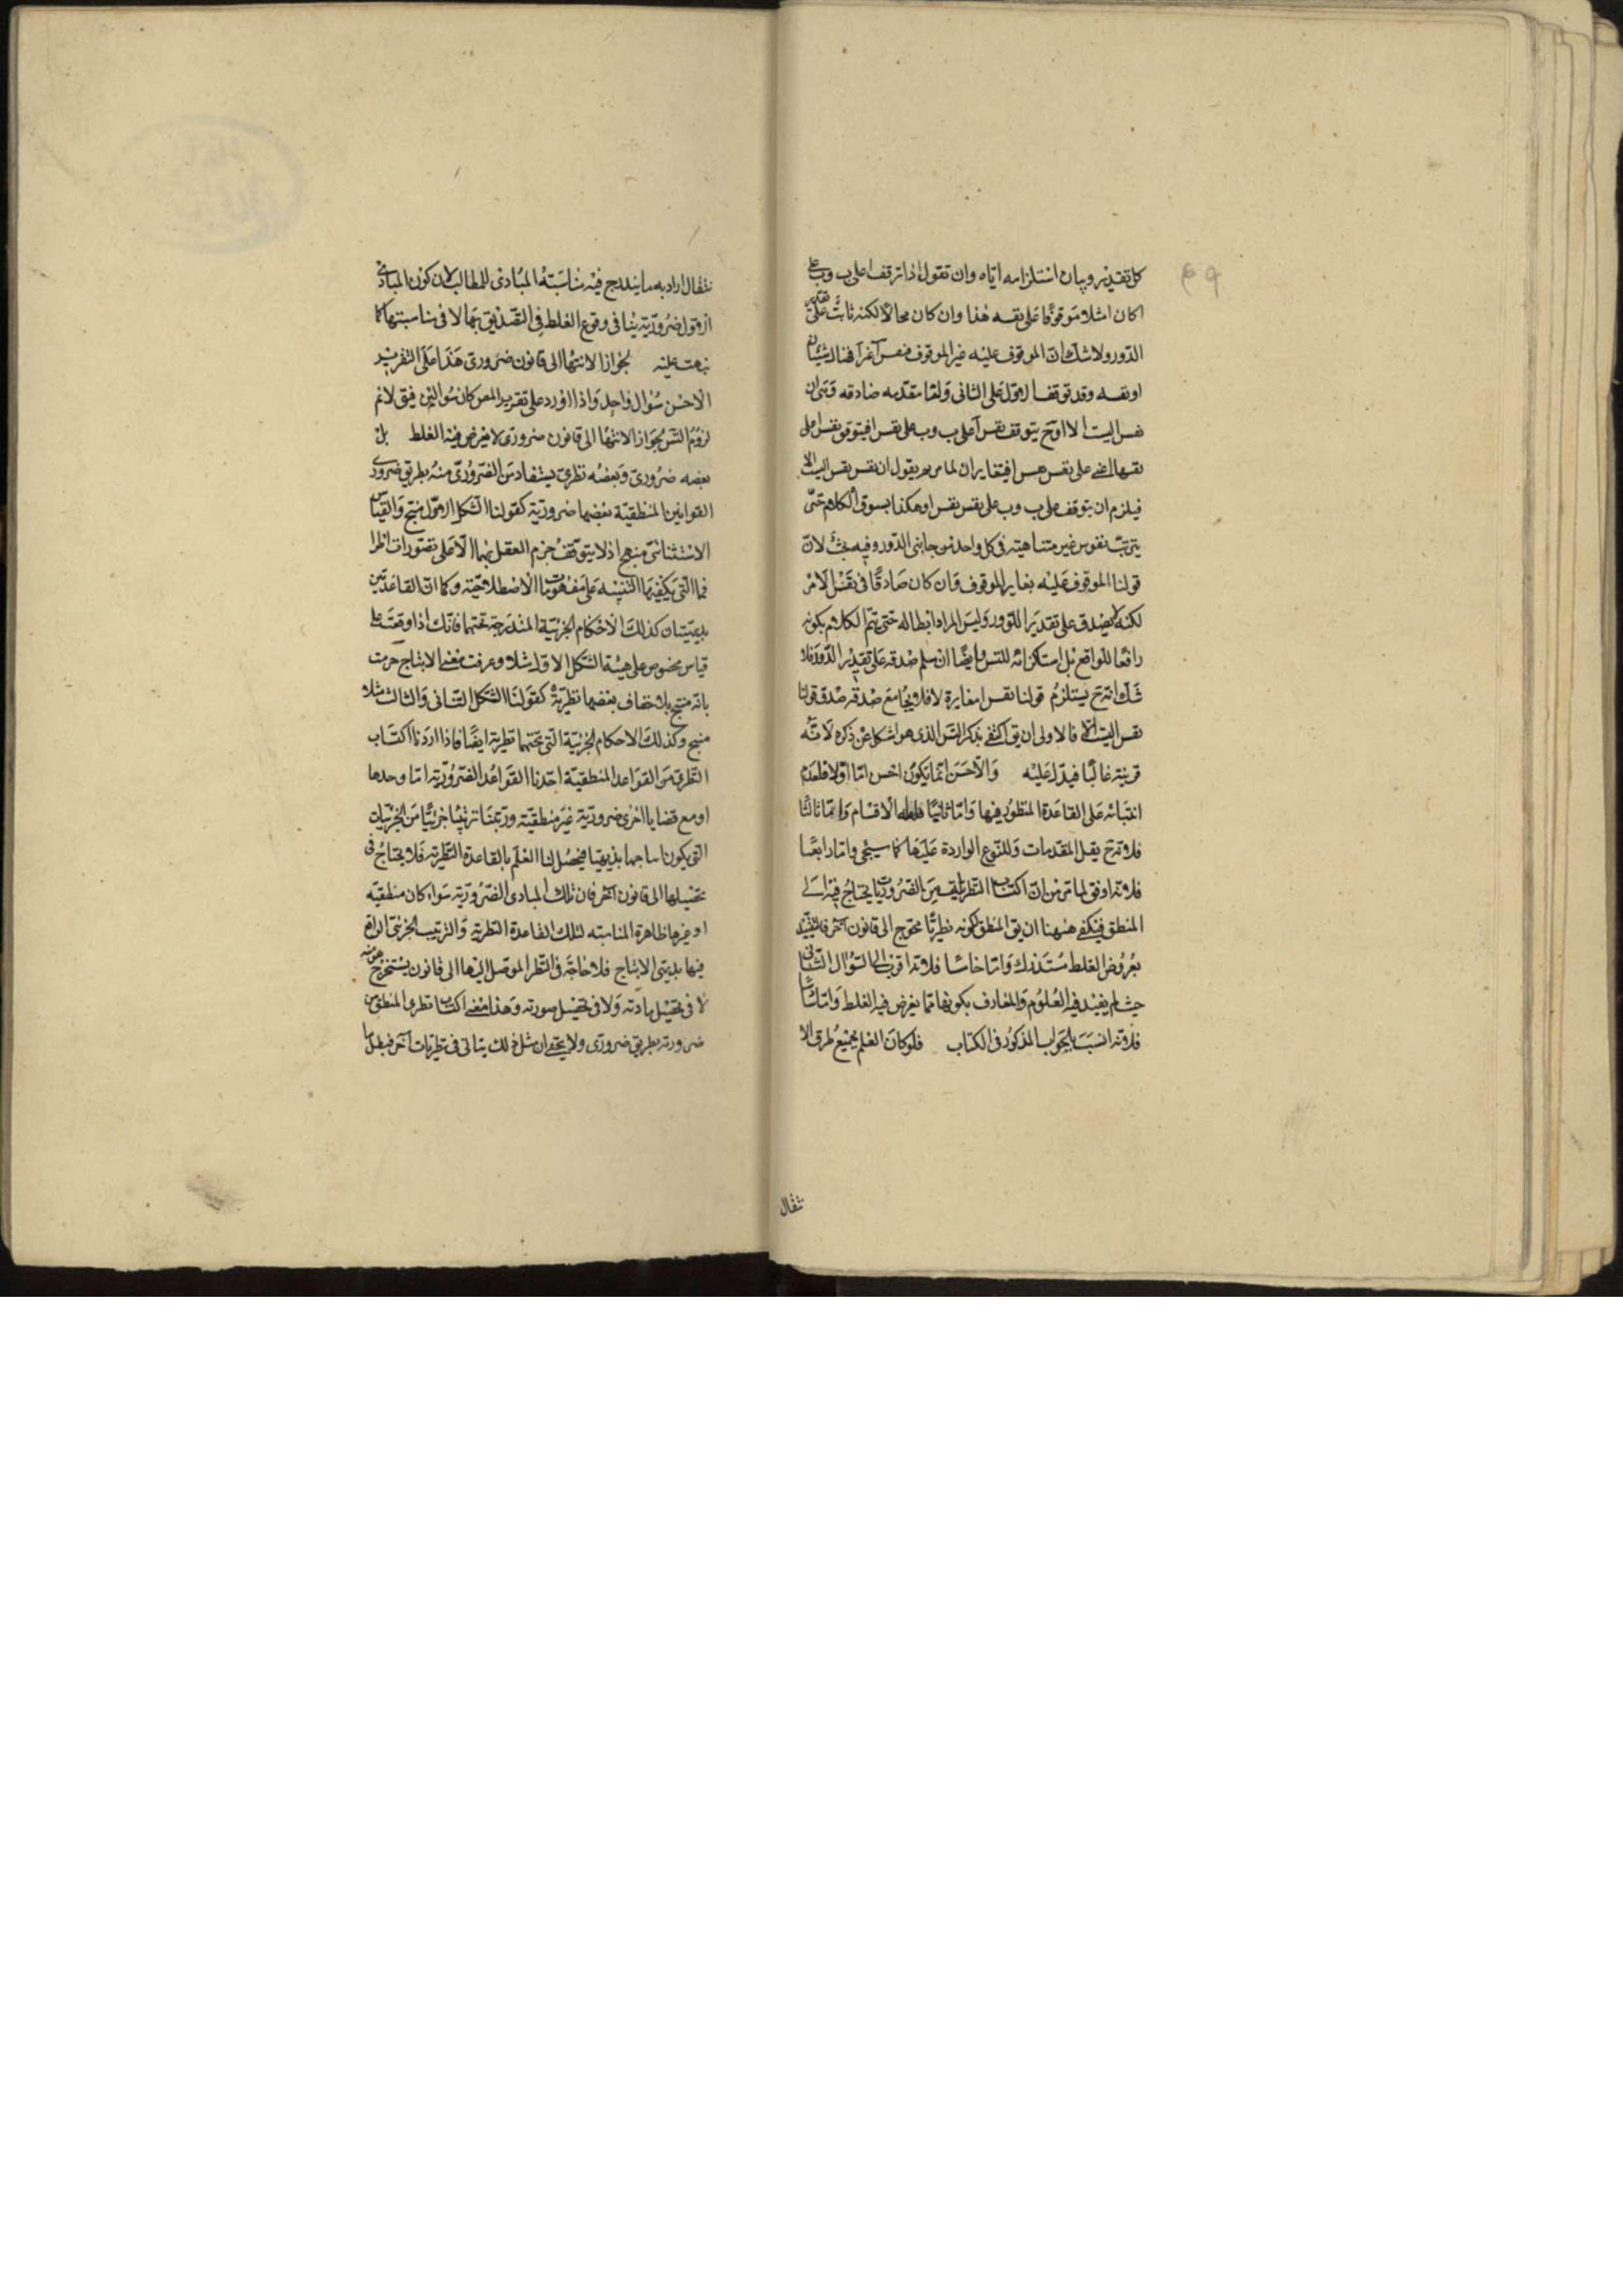 كل تقدير وبيان استلزامه اياه وان تقول اذا توقف ا على ب وب على
ا كان ا مثلا موقوفا على نفسه هذا وان كان محالا لكنه ثابت على تقدير
الدور ولا شك ان الموقوف عليه غير الموقوف فنفس آ غير آ فهناك شيئان
ا ونفسه وقد توقف الاول على الثانى ولنا مقدمه صادقه وهى ان
نفس ا ليست الا ا وح يتوقف نفس آ على ب وب على نفس ا فيتوقف نفس ا على
نفسها اعنى على نفس نفس ا فيتغايران لما مر ثم يقول ان نفس نفس ا ليست الا ا
فيلزم ان يتوقف على ب وب على نفس نفس ا وهكذا يسوق الكلام حتى
يترتب نفوس غير متناهية فى كل واحد من جانبى الدور وفيه بحث لان
قولنا الموقوف عليه يغاير الموقوف وان كان صادقا فى نفس الامر
لكنه لا يصدق على تقدير الدور وليس المراد ابطاله حتى يتم الكلام بكونه
رافعا للواقع بل استلزامه للتس وايضا ان سلم صدقه على تقدير الدور فلا
شك انه ح يستلزم قولنا نفس ا مغايرة لا فلا يجامع صدقه صدق قولنا
نفس ا ليست الا ا فالاولى ان يق اكتفى بذكر التس الذى هو اشكل عن ذكره لانه
قرينه غالبا فيدل عليه والاحسن انما يكون احسن اما اولا فلعدم
ابتنائه على القاعدة المنظور فيها واما ثانيا فلقلة الاقسام واما ثالثا
فلانه ح يقل المقدمات والمنوع الواردة عليها كما سيجى واما رابعا
فلانه اوفق لما مر من ان اكتساب النظريات من الضروريات يحتاج فيه الى
المنطق فيكفى ههنا ان يق المنطق لكونه نظريا محوج الى قانون آخر فالتقييد
بعروض الغلط مستدرك واما خامسا فلانه اقرب الى السؤال الثانى
حيث لم يقيد فيه العلوم والمعارف بكونها مما يعرض فيه الغلط واما سادسا
فلانه انسب بالجواب المذكور فى الكتاب فلو كان العلم بجميع طرق الا
نتقال
نتقال اراد به ما يندرج فيه مناسبة المبادى للمطالب لان كون المبادى
الاول ضرورية ينافى وقوع الغلط فى التصديق بها لا فى مناسبتها كما
نبهت عليه لجواز الانتهاء الى قانون ضرورى هذا على التقرير
الاحسن سؤال واحد واذا اورد على تقرير المص كان سؤالين فيق لا نم
لزوم التس لجواز الانتهاء الى قانون ضرورى لا يعرض فيه الغلط بل
بعضه ضرورى وبعضه نظرى يستفاد من الضرورى منه بطريق ضرورى
القوانين المنطقية بعضها ضرورية كقولنا الشكل الاول منتج والقياس
الاستثنائى منتج اذ لا يتوقف جزم العقل بهما الا على تصورات اطرا
فهما التى يكفيها التنبيه على مفهوماتها الاصطلاحية وكما ان القاعدتين
بديهيتان كذلك الاحكام الجزئية المندرجة تحتهما فانك اذا وقفت على
قياس مخصوص على هيئة الشكل الاول مثلا وعرفت معنى الانتاج جزمت
بانه منتج بلا خفاء وبعضها نظرية كقولنا الشكل الثانى والثالث مثلا
منتج وكذلك الاحكام الجزئية التى تحتهما نظرية ايضا فاذا اردنا اكتساب
النظرى من القواعد المنطقية اخذنا القواعد الضرورية اما وحدها
او مع قضايا اخرى ضرورية غير منطقية ورتبنا ترتيبا جزئيا من الجزئيات
التى يكون انتاجها بديهيا فيحصل لنا العلم بالقاعدة النظرية فلا يحتاج فى
تحصيلها الى قانون آخر فان تلك المبادى الضرورية سواء كان منطقيه
او غيرها ظاهرة المناسبه لتلك القاعدة النظرية والترتيب الجزئى الواقع
فيها بديهى الانتاج فلا حاجة فى النظر الموصل اليها الى قانون يستخرج هو منه
لا فى تحصيل مادته ولا فى تحصيل صورته وهذا معنى اكتساب نظرى المنطق من
ضروريه بطريق ضرورى ولا يخفى ان مثل ذلك يتاتى فى نظريات آخر فبطل ما